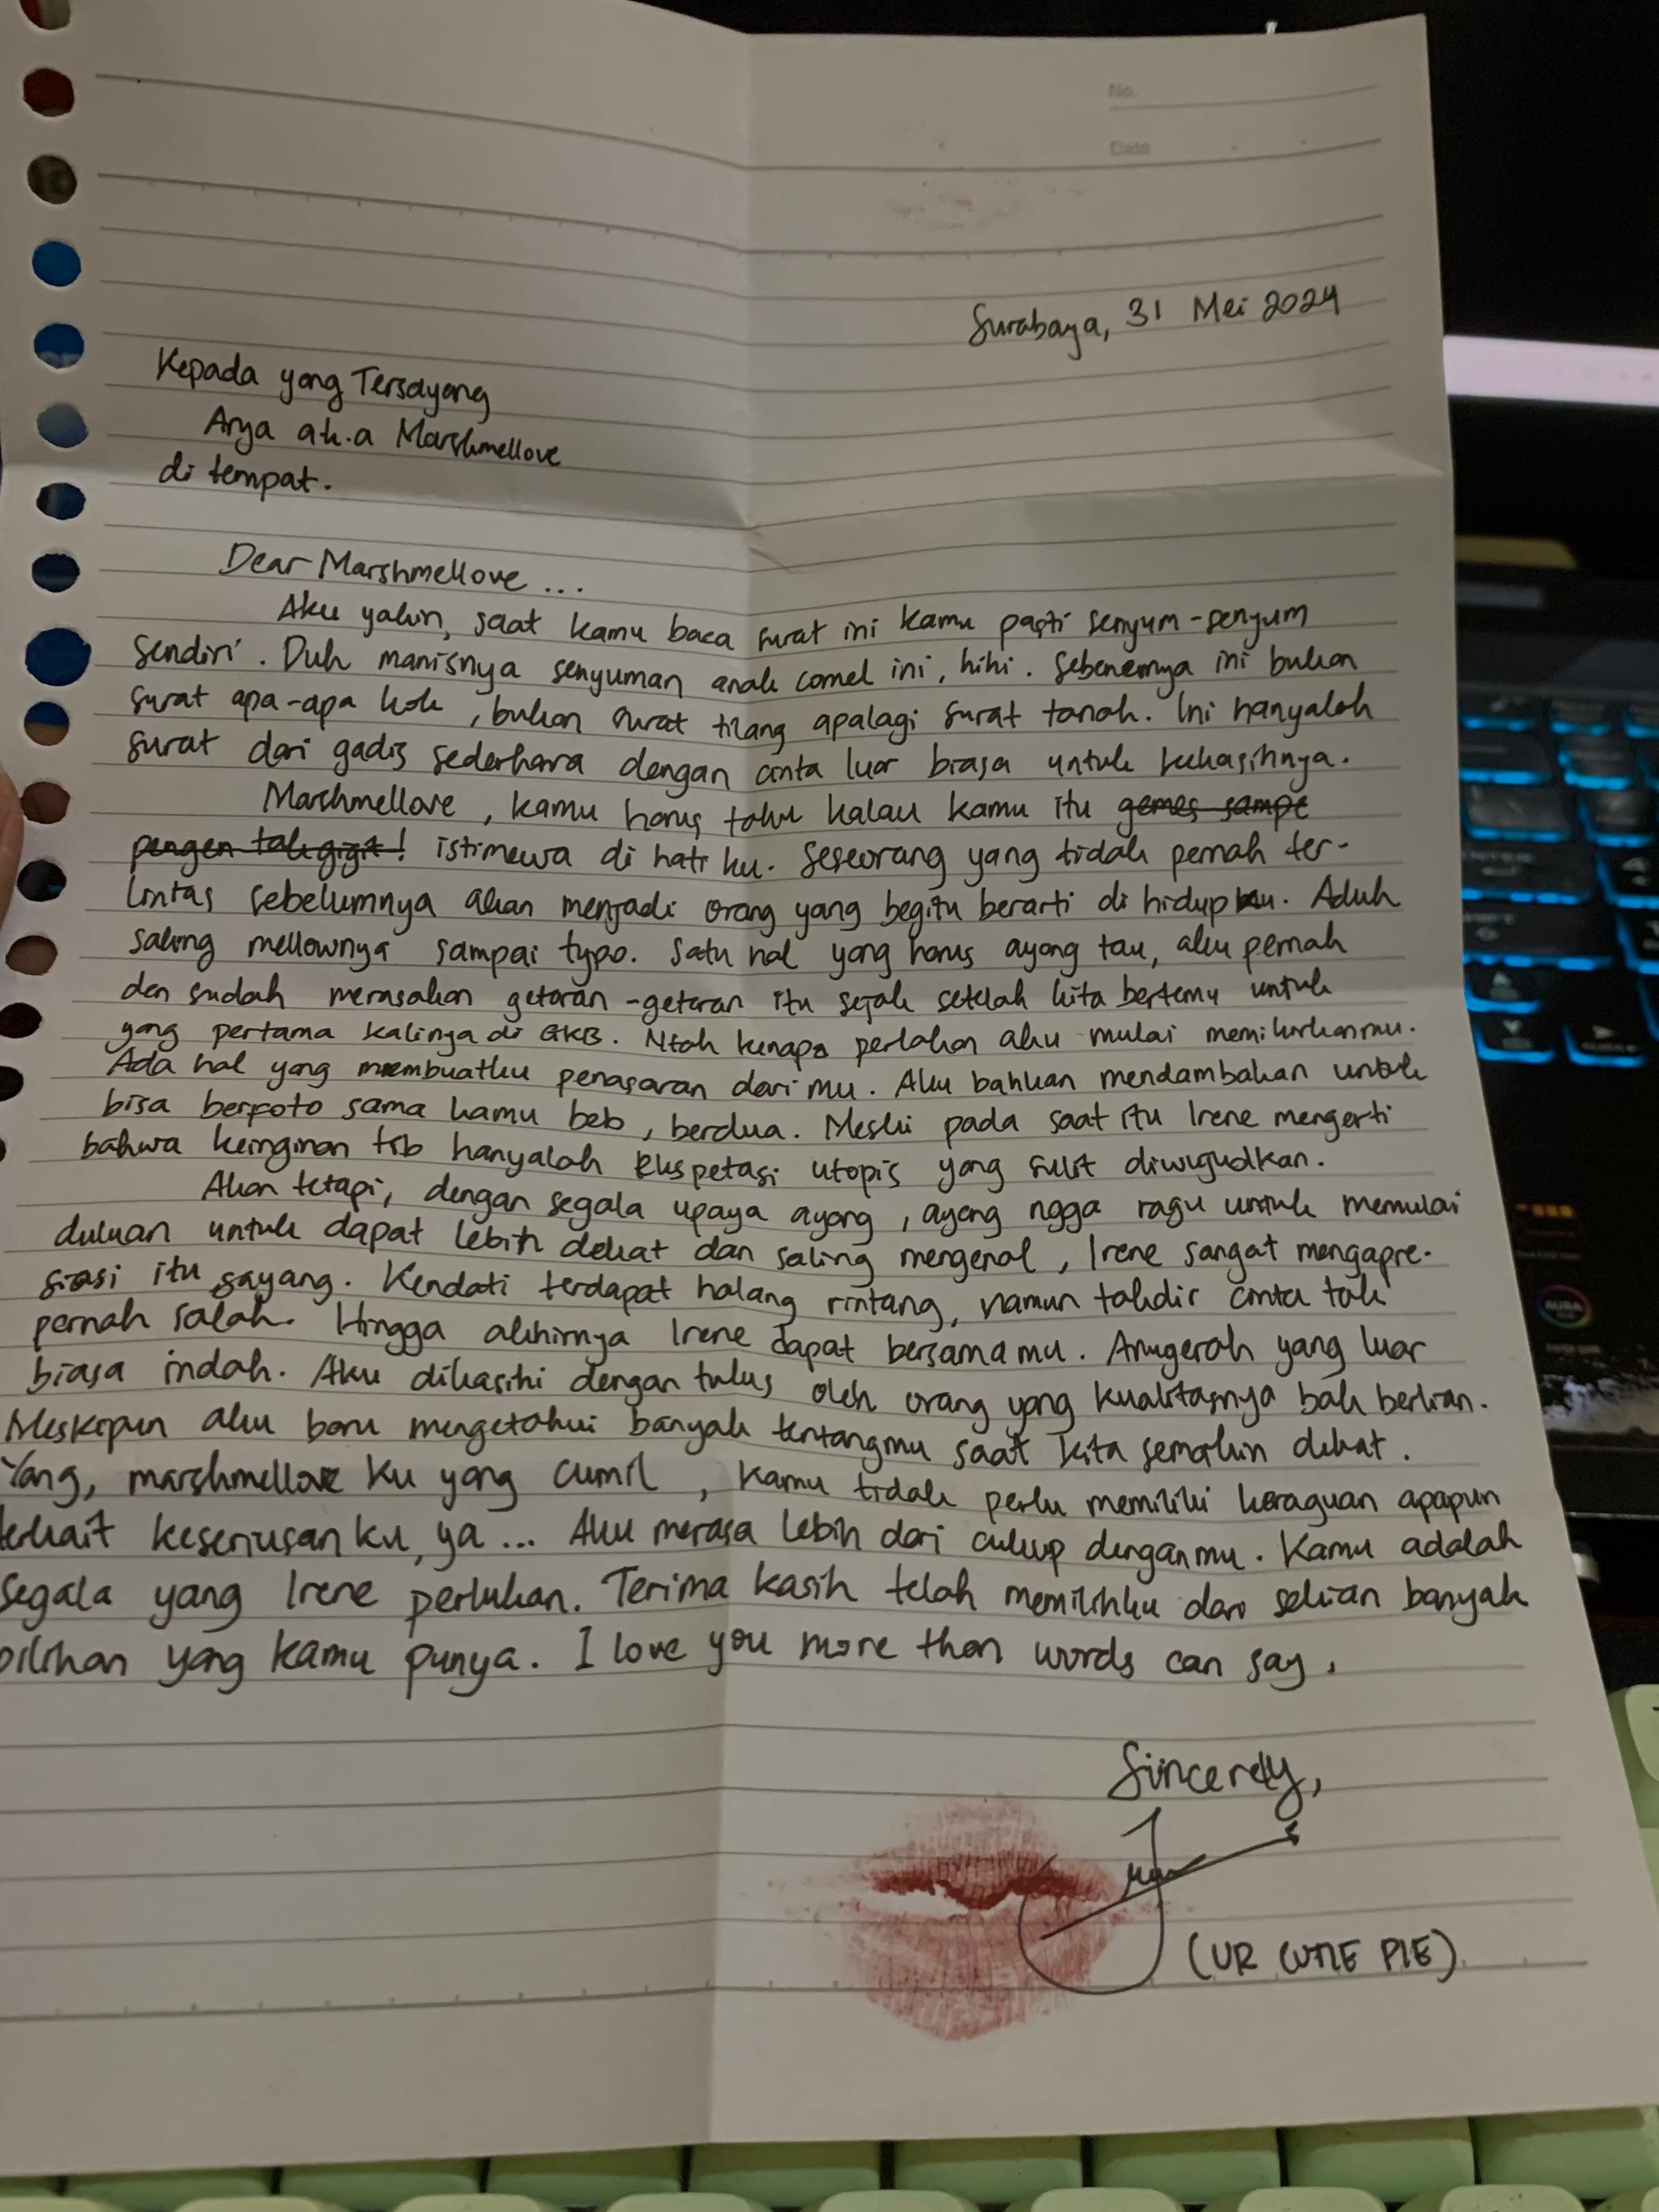 No.
Date
Surabaya, 31 Mei 2024
Kepada yang Tersayang
Arya a.k.a Marshmellove
di tempat.
Dear Marshmellove ...
Aku yakin, saat kamu baca surat ini kamu pasti senyum-senyum
sendiri. Duh manisnya senyuman anak comel ini, hihi. Sebenernya ini bukan
surat apa-apa kok, bukan surat tilang apalagi surat tanah. Ini hanyalah
surat dari gadis sederhana dengan cinta luar biasa untuk kekasihnya.
Marhmellove, kamu harus tahu kalau kamu itu gemes sampe
pengen tak gigit! istimewa di hati ku. Seseorang yang tidak pernah ter-
lintas sebelumnya akan menjadi orang yang begitu berarti di hidupku. Aduh
saking mellownya sampai typo. Satu hal yang harus ayang tau, aku pernah
dan sudah merasakan getaran-getaran itu sejak setelah kita bertemu untuk
yang pertama kalinya di GKB. Ntah kenapa perlahan aku mulai memikirkanmu.
Ada hal yang membuatku penasaran dari mu. Aku bahkan mendambakan untuk
bisa berfoto sama kamu beb, berdua. Meski pada saat itu Irene mengerti
bahwa keinginan tsb hanyalah ekspetasi utopis yang sulit diwujudkan.
Akan tetapi, dengan segala upaya ayang, ayang ngga ragu untuk memulai
duluan untuk dapat lebih dekat dan saling mengenal, Irene sangat mengapre-
siasi itu sayang. Kendati terdapat halang rintang, namun takdir cinta tak
pernah salah. Hingga akhirnya Irene dapat bersamamu. Anugerah yang luar
biasa indah. Aku dikasihi dengan tulus oleh orang yang kualitasnya bak berlian.
Meskipun aku baru mengetahui banyak tentangmu saat kita semakin dekat.
Yang, marshmellove ku yang cumil, kamu tidak perlu memiliki keraguan apapun
terkait keseriusan ku, ya ... Aku merasa lebih dari cukup denganmu. Kamu adalah
segala yang Irene perlukan. Terima kasih telah memilihku dari sekian banyak
pilihan yang kamu punya. I love you more than words can say.
Sincerely,
(UR CUTIE PIE)
AURA